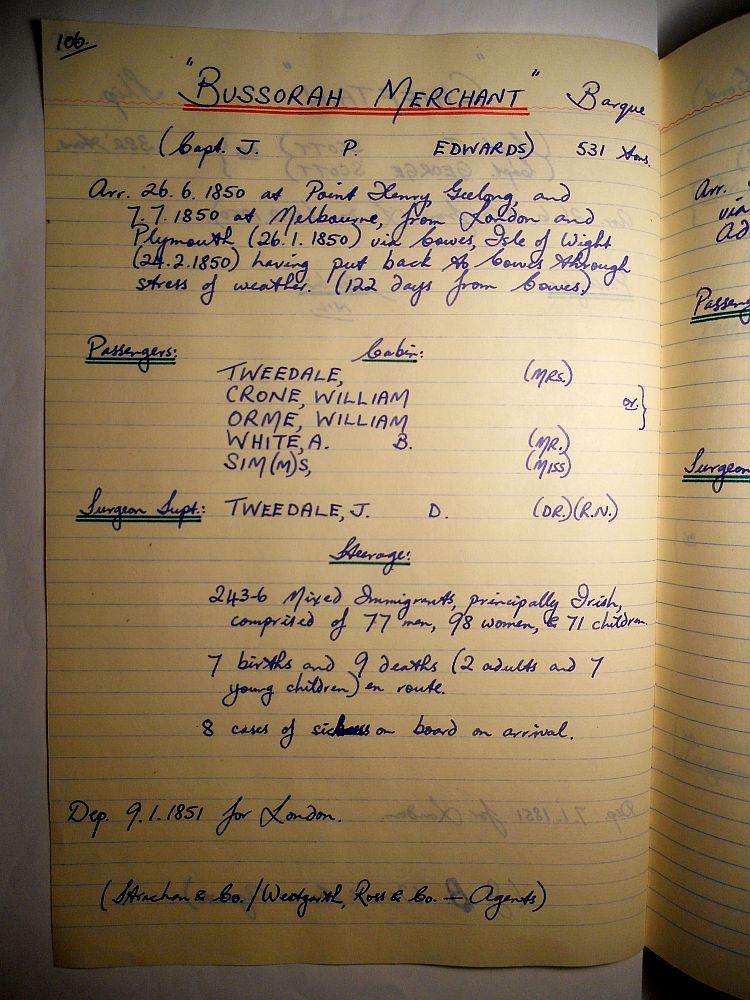 106.
"BUSSORAH MERCHANT" Barque
(Capt. J. P. EDWARDS) 531 tons.
Arr. 26.6.1850 at Point Henry, Geelong, and
7.7.1850 at Melbourne, from London and
Plymouth (26.1.1850) via Cowes, Isle of Wight
(24.2.1850) having put back to Cowes through
stress of weather. (122 days from Cowes)
Passengers: Cabin:
TWEEDALE, (MRS.)
CRONE, WILLIAM
ORME, WILLIAM or }
WHITE, A. B. (MR.)
SIM(M)S, (MISS)
Surgeon Supt.: TWEEDALE, J. D. (DR.)(R.N.)
Steerage:
243-6 Mixed Immigrants, principally Irish,
comprised of 77 men, 98 women, & 71 children.
7 births and 9 deaths (2 adults and 7
young children) en route.
8 cases of sickness on board on arrival.
Dep. 9.1.1851 for London.
(Strachan & Co./Westgarth, Ross & Co. — Agents)
Arr.
via
Ad
Passeng
Surgeon